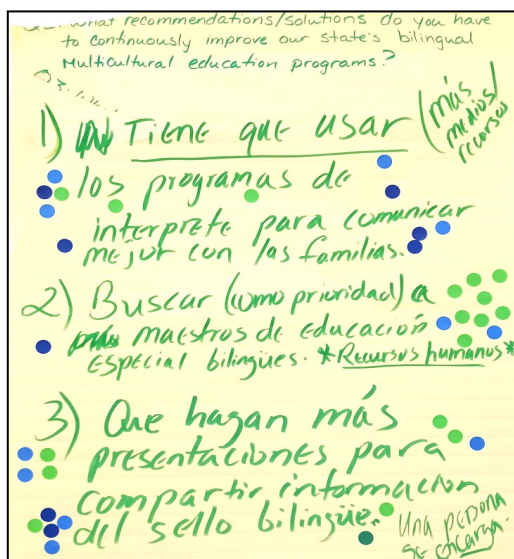 What recommendations/solutions do you have
to continuously improve our state's bilingual
Multicultural education programs?
1) Tiene que usar (más
medios/
recursos
los programas de
interprete para comunicar
mejor con las familias.
2) Buscar (como prioridad) a
maestros de educación
especial bilingües. *Recursos humanos*
3) Que hagan más
presentaciones para
compartir informacion
del sello bilingüe.
Una persona
se encarga.